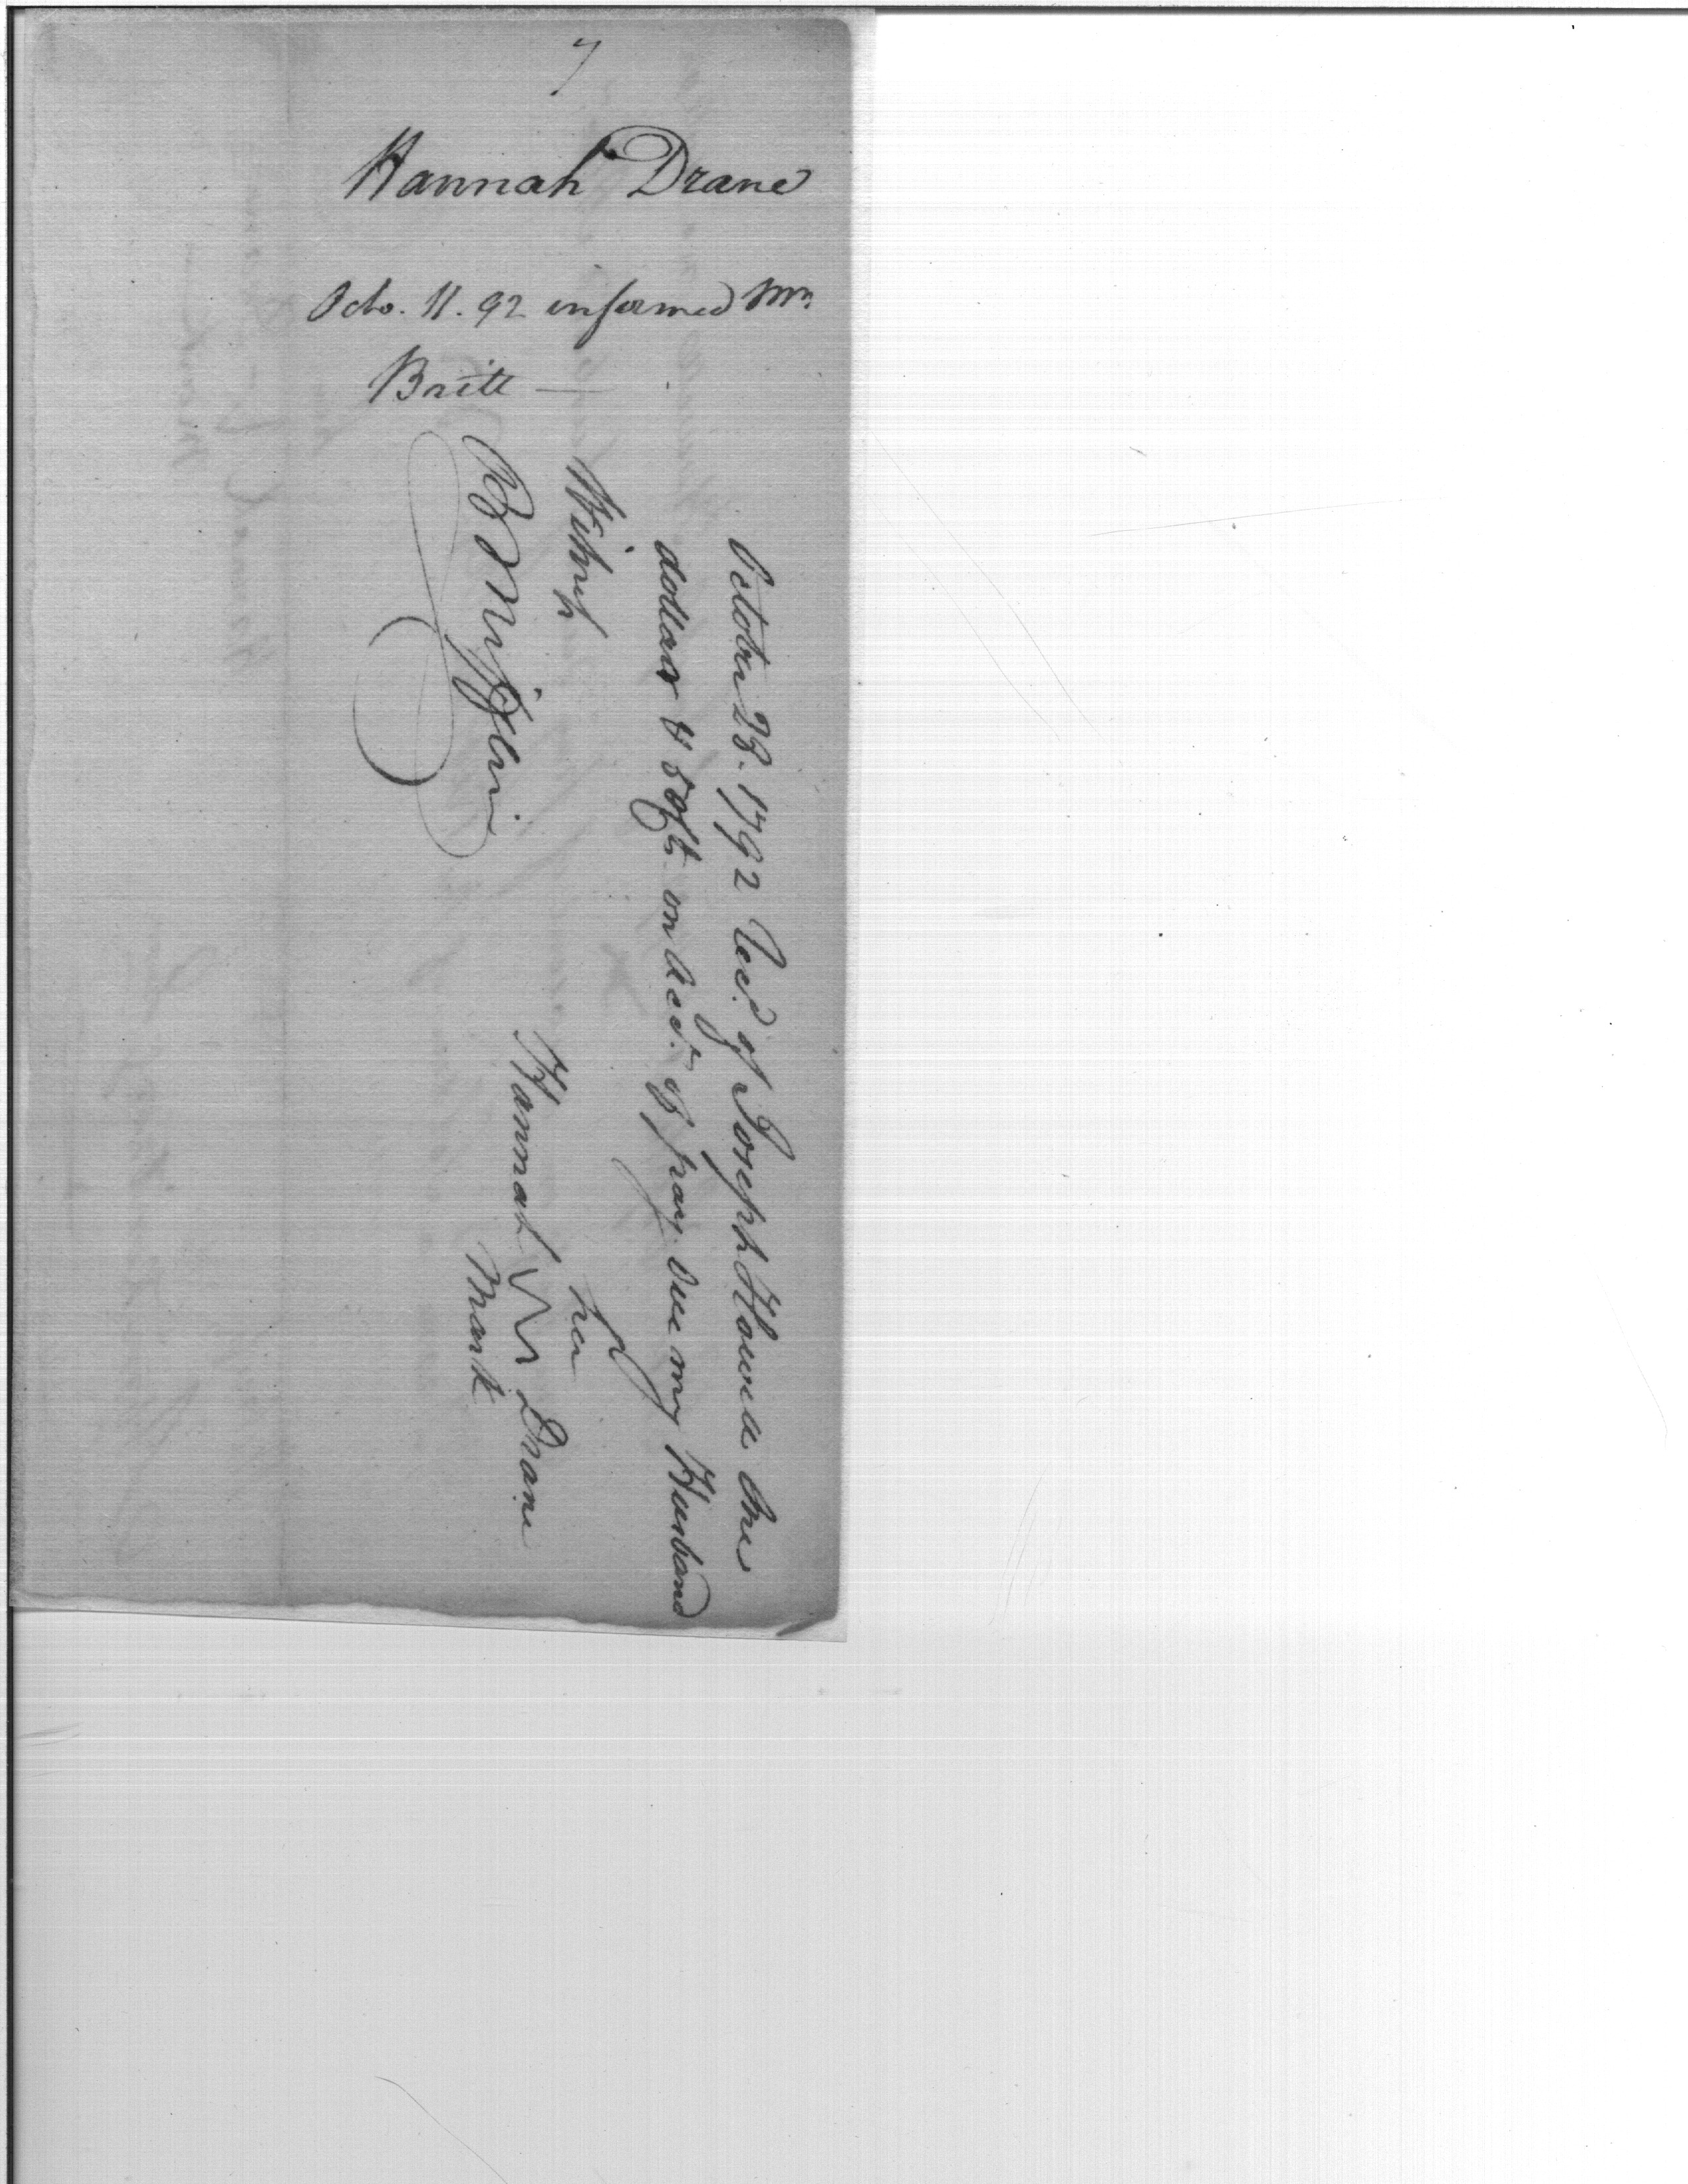 7
Hannah Drane
Octo. 11. 92 informed Mr.
Britt —
October 28. 1792 Recd. of Joseph Howell One
dollar & 50/ on Acct. of pay due my Husband
Witness
her
Hannah Drane
Mark